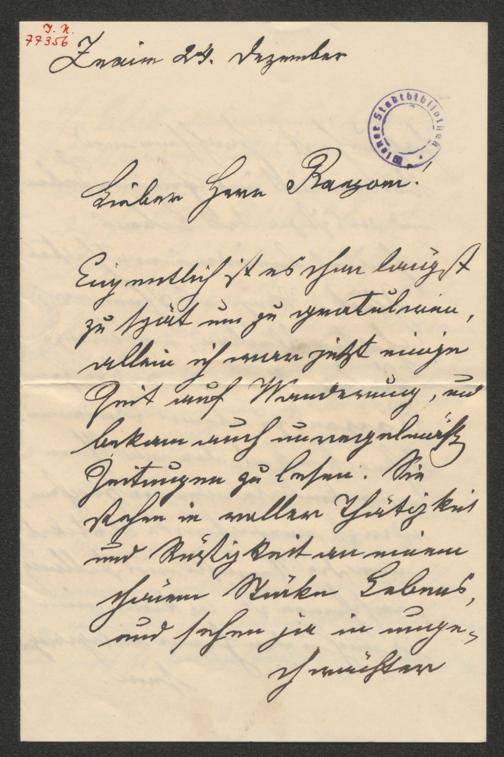 I. N.
77356
Znaim 24. Dezember
Wiener Stadtbibliothek
Lieber Herr Ranzoni!
Eigentlich ist es schon längst
zu spät um zu gratulieren,
allein ich war jetzt einige
Zeit auf Wanderung, und
bekam auch unregelmäßig
Zeitungen zu lesen. Sie
stehen in voller Thätigkeit
und Rüstigkeit an einem
schönen Stücke Lebens,
und sehen ja in unge-
schwächter